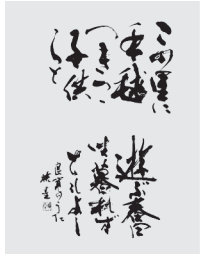 この里に
手毬
つきつつ
子供
らと
遊ぶ春日は
暮れず
ともよし
良寛のうた